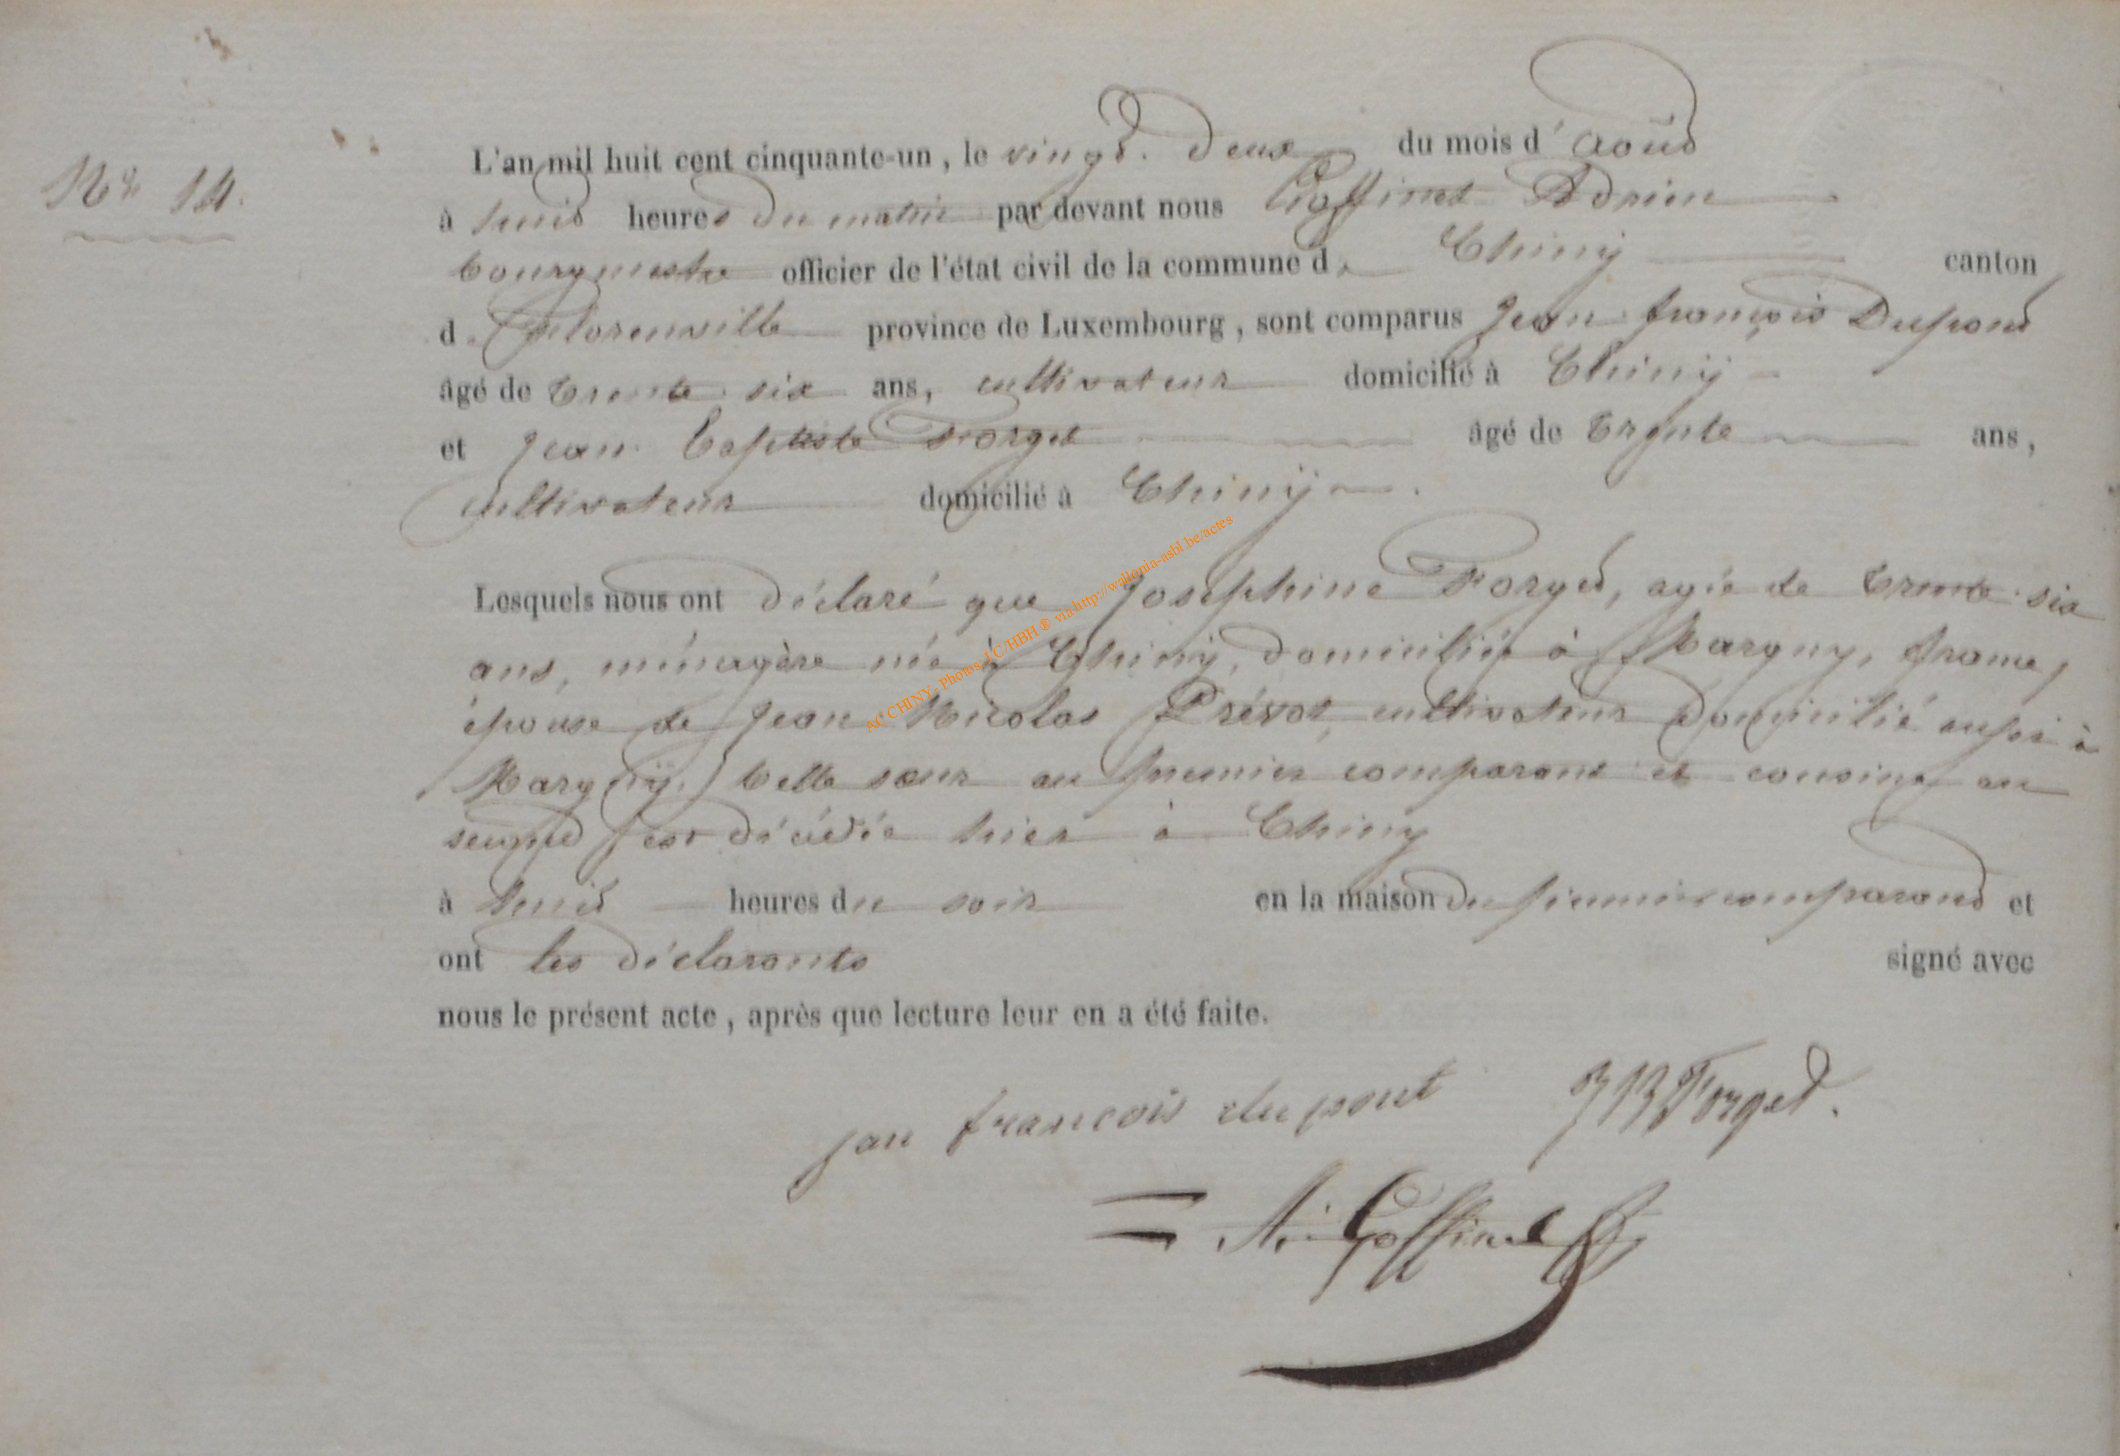 Nº 14.
L'an mil huit cent cinquante-un, le vingt deux du mois d'Août
à huit heures du matin par devant nous Goffinet Adrien
bourgmestre officier de l'état civil de la commune de Chiny canton
de Florenville province de Luxembourg, sont comparus Jean françois Dupont
âgé de trente six ans, cultivateur domicilié à Chiny
et Jean Baptiste Forget âgé de trente ans,
cultivateur domicilié à Chiny.
Lesquels nous ont déclaré que Josephine Forget, agée de trente six
ans, ménagère née à Chiny, domiciliée à Margny, france,
épouse de Jean Nicolas Prévot, cultivateur domicilié aussi à
Margny, belle sœur au premier comparant et cousine au
second est décédée hier à Chiny
à huit heures du soir en la maison du premier comparant et
ont les déclarants signé avec
nous le présent acte, après que lecture leur en a été faite.
jan francois dupont JB Forget.
A. Goffinet
AC CHINY - Photos JC/HBH ® via http://wallonia-asbl.be/actes